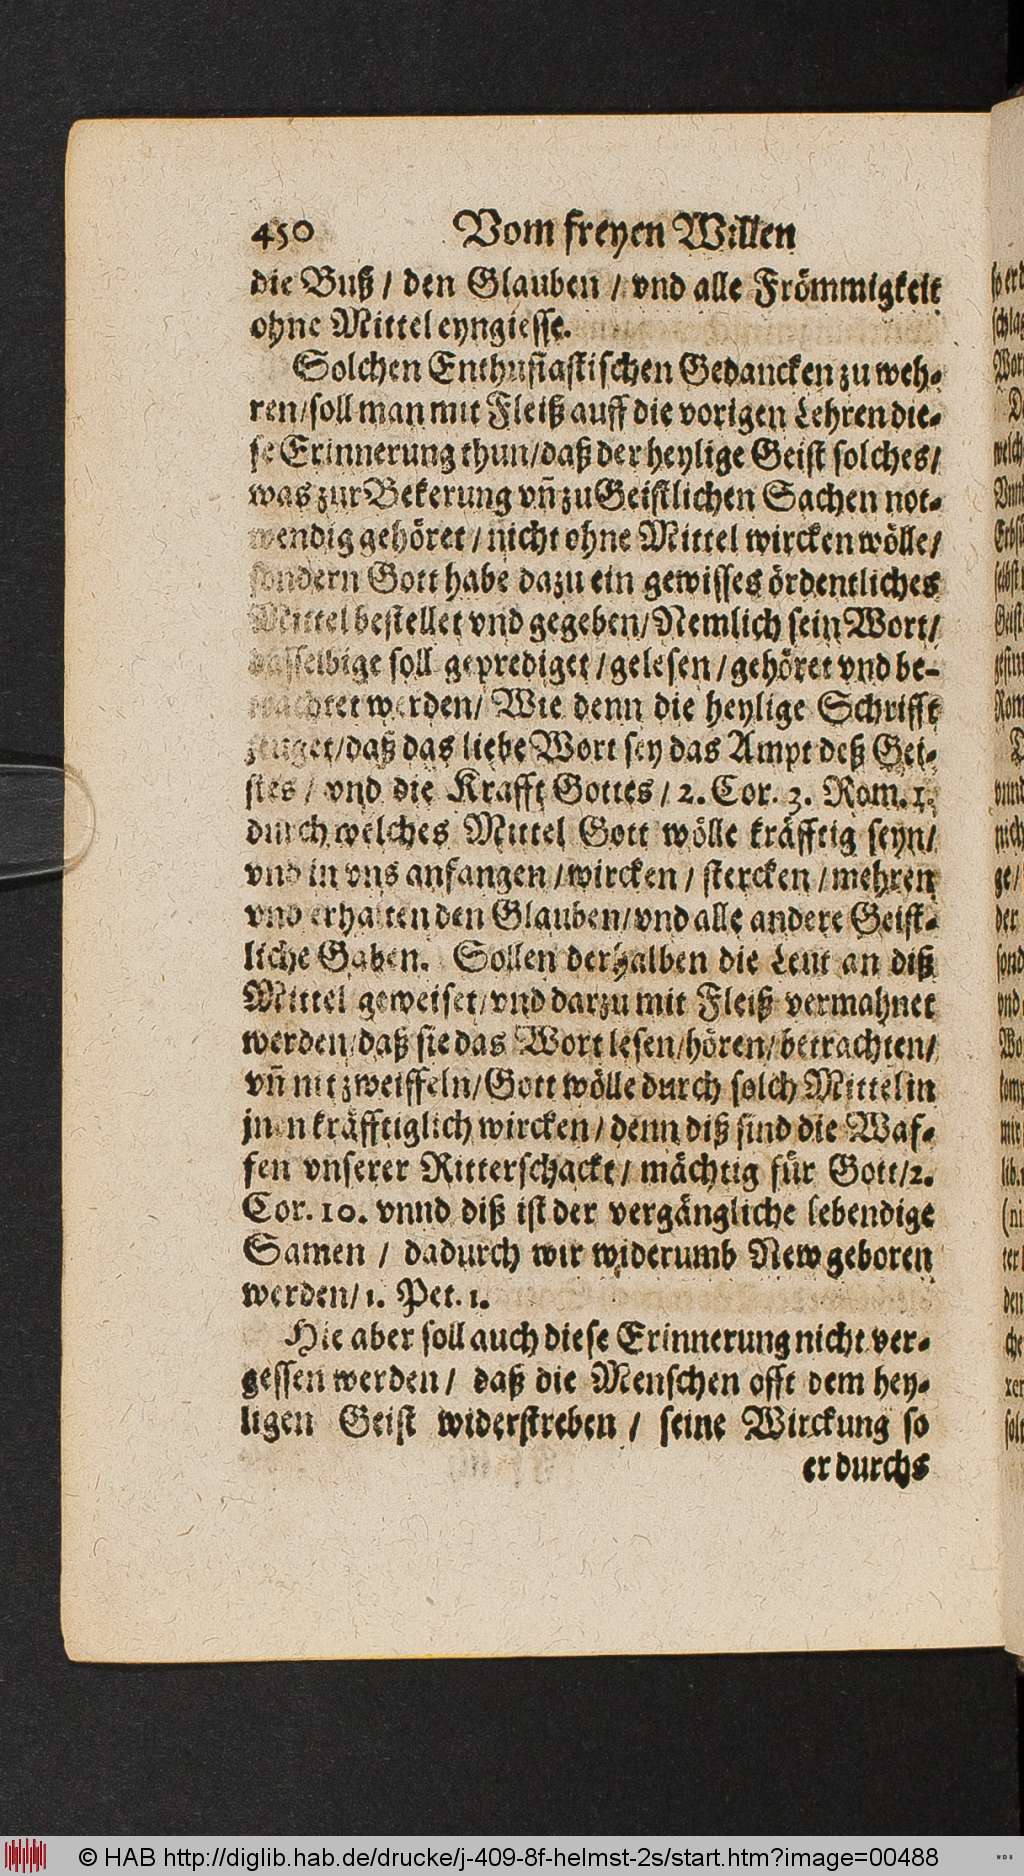 450 Vom freyen Willen
die Buß / den Glauben / vnd alle Frömmigkeit
ohne Mittel eyngiesse.
Solchen Enthusiastischen Gedancken zu weh-
ren/soll man mit Fleiß auff die vorigen Lehren die-
se Erinnerung thun/daß der heylige Geist solches/
was zur Bekerung vñ zu Geistlichen Sachen not-
wendig gehöret / nicht ohne Mittel wircken wölle/
sondern Gott habe dazu ein gewisses ördentliches
Mittel bestellet vnd gegeben/Nemlich sein Wort/
dasselbige soll geprediget /gelesen /gehöret vnd be-
trachtet werden/ Wie denn die heylige Schrifft
zeuget/daß das liebe Wort sey das Ampt deß Gei-
stes / vnd die Krafft Gottes / 2. Cor. 3. Rom. 1.
durch welches Mittel Gott wölle kräfftig seyn/
vnd in vns anfangen /wircken / stercken /mehren
vnd erhalten den Glauben/vnd alle andere Geist-
liche Gaben. Sollen derhalben die Leut an diß
Mittel geweiset/vnd darzu mit Fleiß vermahnet
werden/daß sie das Wort lesen/hören/betrachten/
vñ nit zweiffeln/Gott wölle durch solch Mittel in
jnen kräfftiglich wircken / denn diß sind die Waf-
fen vnserer Ritterschackt / mächtig für Gott/2.
Cor. 10. vnnd diß ist der vergängliche lebendige
Samen / dadurch wir widerumb New geboren
werden/1. Pet. 1.
Hie aber soll auch diese Erinnerung nicht ver-
gessen werden / daß die Menschen offt dem hey-
ligen Geist widerstreben / seine Wirckung so
er durchs
© HAB http://diglib.hab.de/drucke/j-409-8f-helmst-2s/start.htm?image=00488